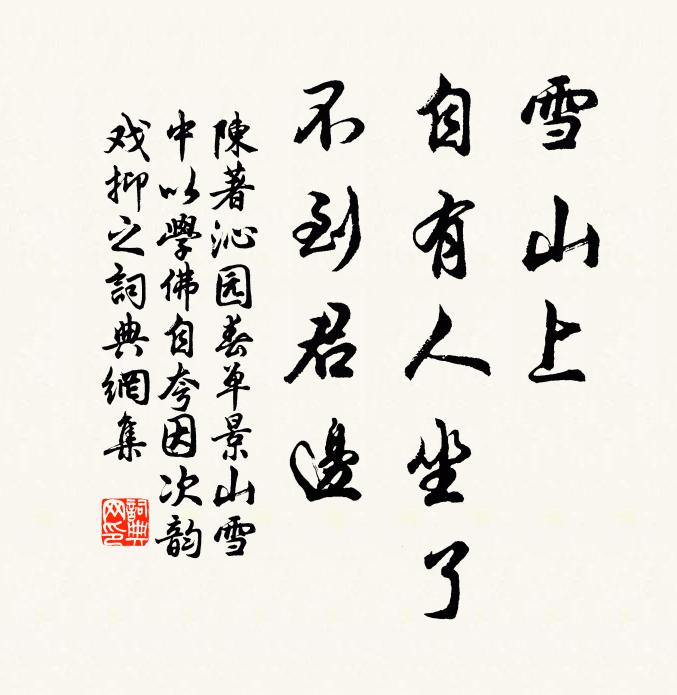 雪山上
自有人坐了
不到君邊
陳著沁园春单景山雪
中以學佛自夸因次韵
戏抑之詞典網集
詞典网印